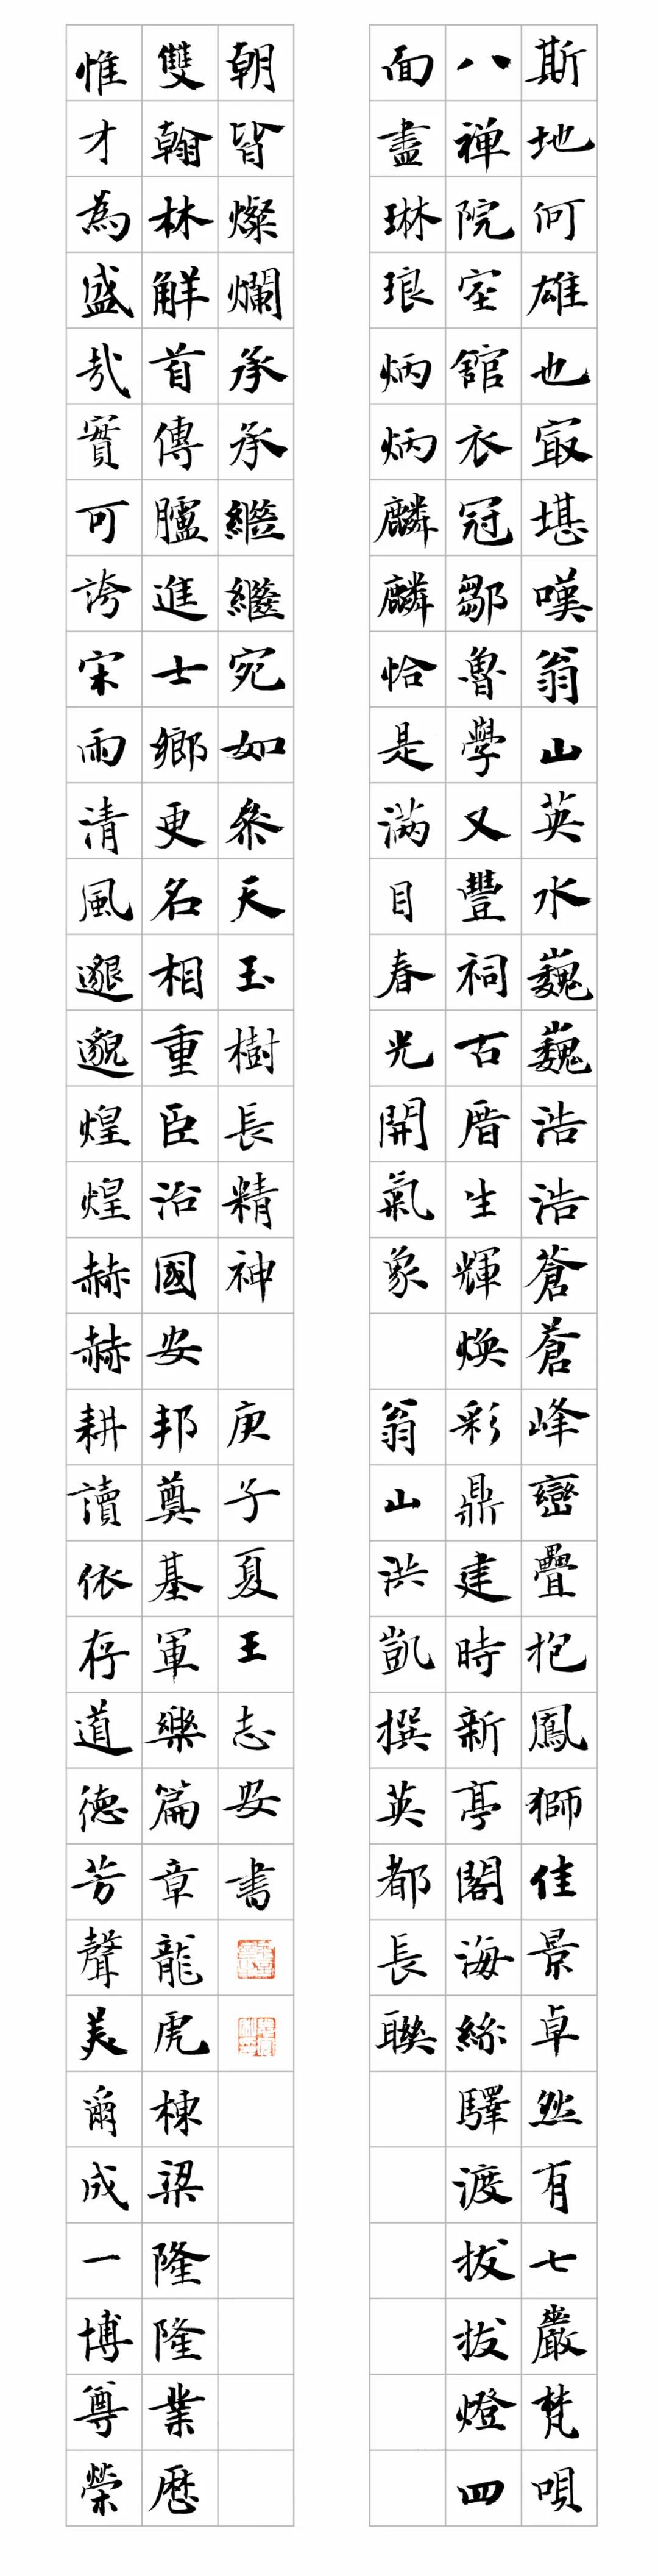 斯地何雄也㝡堪嘆翁山英水巍巍浩浩蒼蒼峰巒疊抱鳳獅佳景卓然有七巖梵唄
八禅院室館衣冠鄒魯學又豐祠古厝生輝煥彩鼎建時新亭閣海絲驛渡拔拔燈四
面盡琳琅炳炳麟麟恰是滿目春光開氣象 翁山洪凱撰英都長聯
惟才為盛哉實可誇宋雨清風邈邈煌煌赫赫耕讀依存道德芳聲美爾成一博尊榮
雙翰林解首傳臚進士鄉更名相重臣治國安邦奠基軍樂篇章龍虎棟梁隆隆業歷
朝皆燦爛承承繼繼宛如參天玉樹長精神 庚子夏王志安書